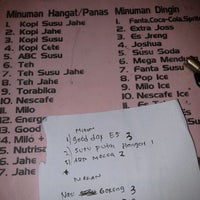 Minuman Hangat/Panas
1. Kopi Susu Jahe
2. Kopi
3. Kopi Susu
4. Kopi Cete
5. ABC Susu
6. Teh
7. Teh Susu Jahe
8. Jahe
9. Torabika
10. Nescafe
11. Milo
12. Energe
13. Good
14. Milo +
15. Nutris
Minuman Dingin
1. Fanta,Coca-Cola,Sprite
2. Extra Joss
3. Es Jreng
4. Joshua
5. Susu Soda
6. Mega Mend
7. Fanta Susu
8. Pop Ice
9. Milo Ice
10. Nescafe Ice
Minum
1) good day ES 3
2) Susu putih Hangat 1
3) ABC mocca 2
Makan
Goreng 3